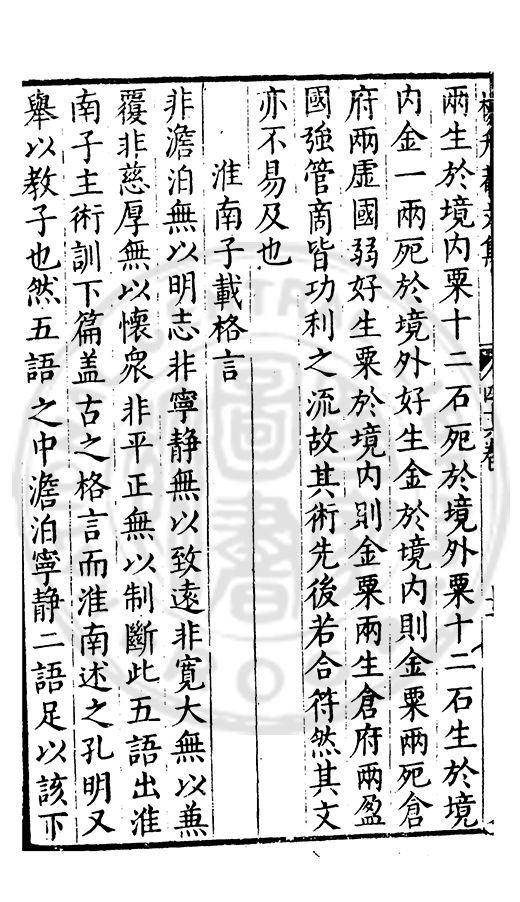 兩生於境內粟十二石死於境外粟十二石生於境
内金一兩死於境外好生金於境内則金粟兩死倉
府兩虛國弱好生粟於境内則金粟兩生倉府兩盈
國強管商皆功利之流故其術先後若合符然其文
亦不易及也
淮南子載格言
非澹泊無以明志非寧静無以致遠非寬大無以蕪
覆非慈厚無以懷衆非平正無以制斷此五語出淮
南子主術訓下篇盖古之格言而淮南述之孔明又
舉以教子也然五語之中澹泊寧静二語足以該下